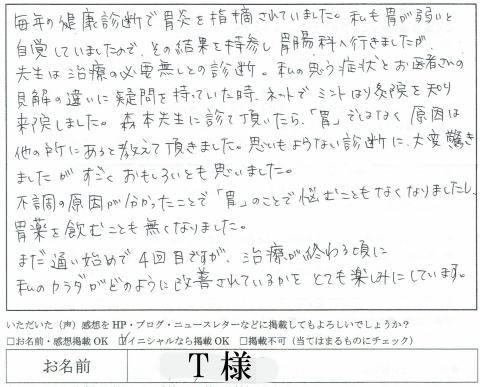 毎年の健康診断で胃炎を指摘されていました。私も胃が弱いと
自覚していましたので、その結果を持参し胃腸科へ行きましたが、
先生は治療の必要無しとの診断。私の思う症状とお医者さんの
見解の違いに疑問を持っていた時、ネットでミントはり灸院を知り
来院しました。森本先生に診て頂いたら、「胃」ではなく原因は
他の所にあると教えて頂きました。思いもよらない診断に、大変驚き
ましたがすごくおもしろいとも思いました。
不調の原因が分かったことで「胃」のことで悩むこともなくなりましたし、
胃薬を飲むことも無くなりました。
まだ通い始めで4回目ですが、治療が終わる頃に
私のカラダがどのように改善されているかをとても楽しみにしています。
いただいた（声）感想をHP・ブログ・ニュースレターなどに掲載してもよろしいでしょうか？
□お名前・感想掲載OK ☑イニシャルなら掲載OK □掲載不可（当てはまるものにチェック）
お名前 T 様